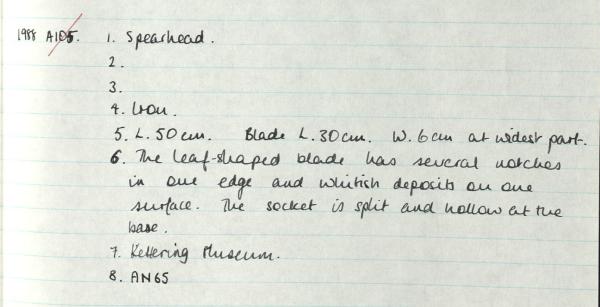 1988 A105. 1. Spearhead.
2.
3.
4. Iron.
5. L. 50cm. Blade L. 30cm. W. 6cm at widest part.
6. The leaf-shaped blade has several notches
in one edge and whitish deposits on one
surface. The socket is split and hollow at the
base.
7. Kettering Museum.
8. AN65